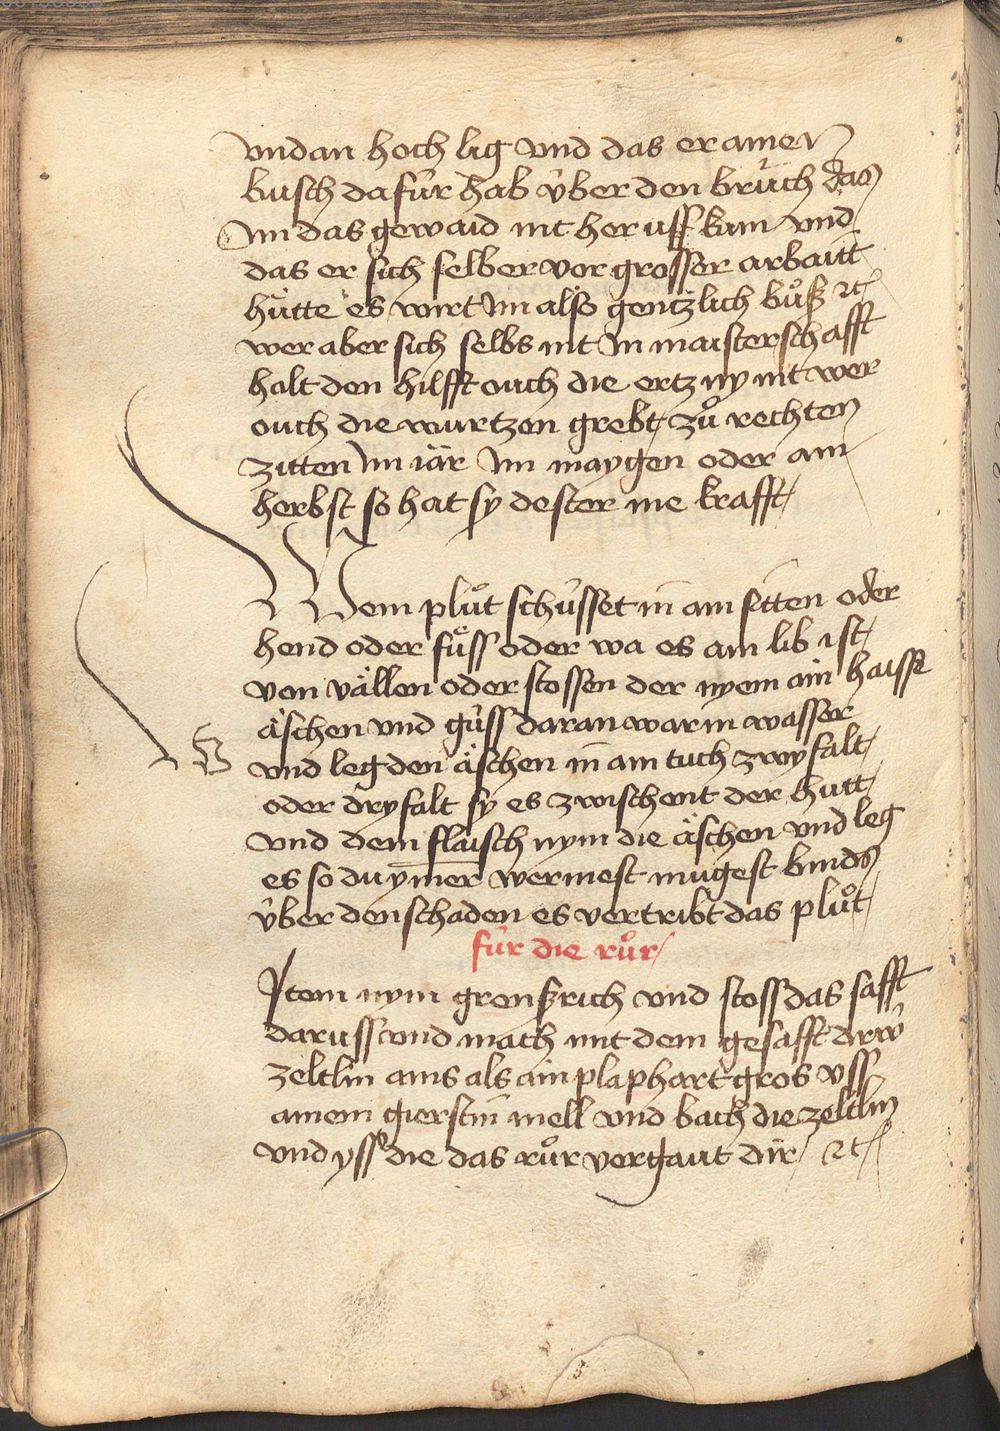 vnd an hoch lig vnd das er amer
busch da fúr hab v́ber den bruch das
Im das gewaid nit her uff kum vnd
das er sich selber vor grosser arbaitt
hútte es wirt Im also gentzlich bůß ꝛc
wer aber sich selbs nit In maisterschafft
halt den hilfft ouch die ertzny nit wer
ouch die wurtzen grebt zů rechten
zitten Im iär Im maygen oder am
herbst so hat sy dester me krafft
Wem plůt schússet in̄ am sitten oder
hend oder fůss oder wa es am lib ist
von vällen oder stossen der nyem ain haiss
äschen vnd gúss daran warm wasser
vnd leg den äschen in̄ ain tuch zwyfalt
oder dryfalt sy es zwischent der hutt
vnd dem flaisch nym die äschen vnd leg
es so du ym̄er wermest mugest bind
v́ber den schaden es vertribt das plůt
fúr die růr
Item nym grensrich vnd stoss das safft
daruss vnd mach mit dem gesafft drẃ
zeltlin ains als ain plaphart gros vss
ainem gierstin̄ mell vnd bach die zeltlin
vnd yss die das růr vergaut dir ꝛc